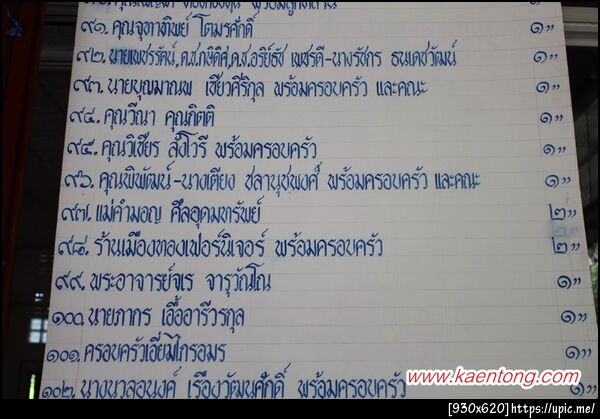 ๙๑. คุณจุฑาทิพย์ โตมรศักดิ์ ๑"
๙๒. นายเพชรรัตน์, ด.ช.ภูษิติศ, ด.ช.อริย์ธัช เพชรดี-นางรัชกร ธนเดชวัฒน์ ๑"
๙๓. นายบุญมาณพ เชียวศิริกุล พร้อมครอบครัว และคณะ ๑"
๙๔. คุณวีณา คุณกิตติ ๑"
๙๕. คุณวิเชียร สังโวรี พร้อมครอบครัว ๑"
๙๖. คุณพิพัฒน์-นางเตียง ชลานุชพงศ์ พร้อมครอบครัว และคณะ ๑"
๙๗. แม่คำมอญ ศีลอุดมทรัพย์ ๒"
๙๘. ร้านเมืองทองเฟอร์นิเจอร์ พร้อมครอบครัว ๒"
๙๙. พระอาจารย์จุเร จารุวัณโณ ๑"
๑๐๐. นายภากร เอื้ออารีวรกุล ๑"
๑๐๑. ครอบครัวเอี่ยมไกรอมร ๑"
๑๐๒. นางนวลอนงค์ เรืองวัฒนศักดิ์ พร้อมครอบครัว ๑"
www.kaentong.com
[930x620] https://upic.me/